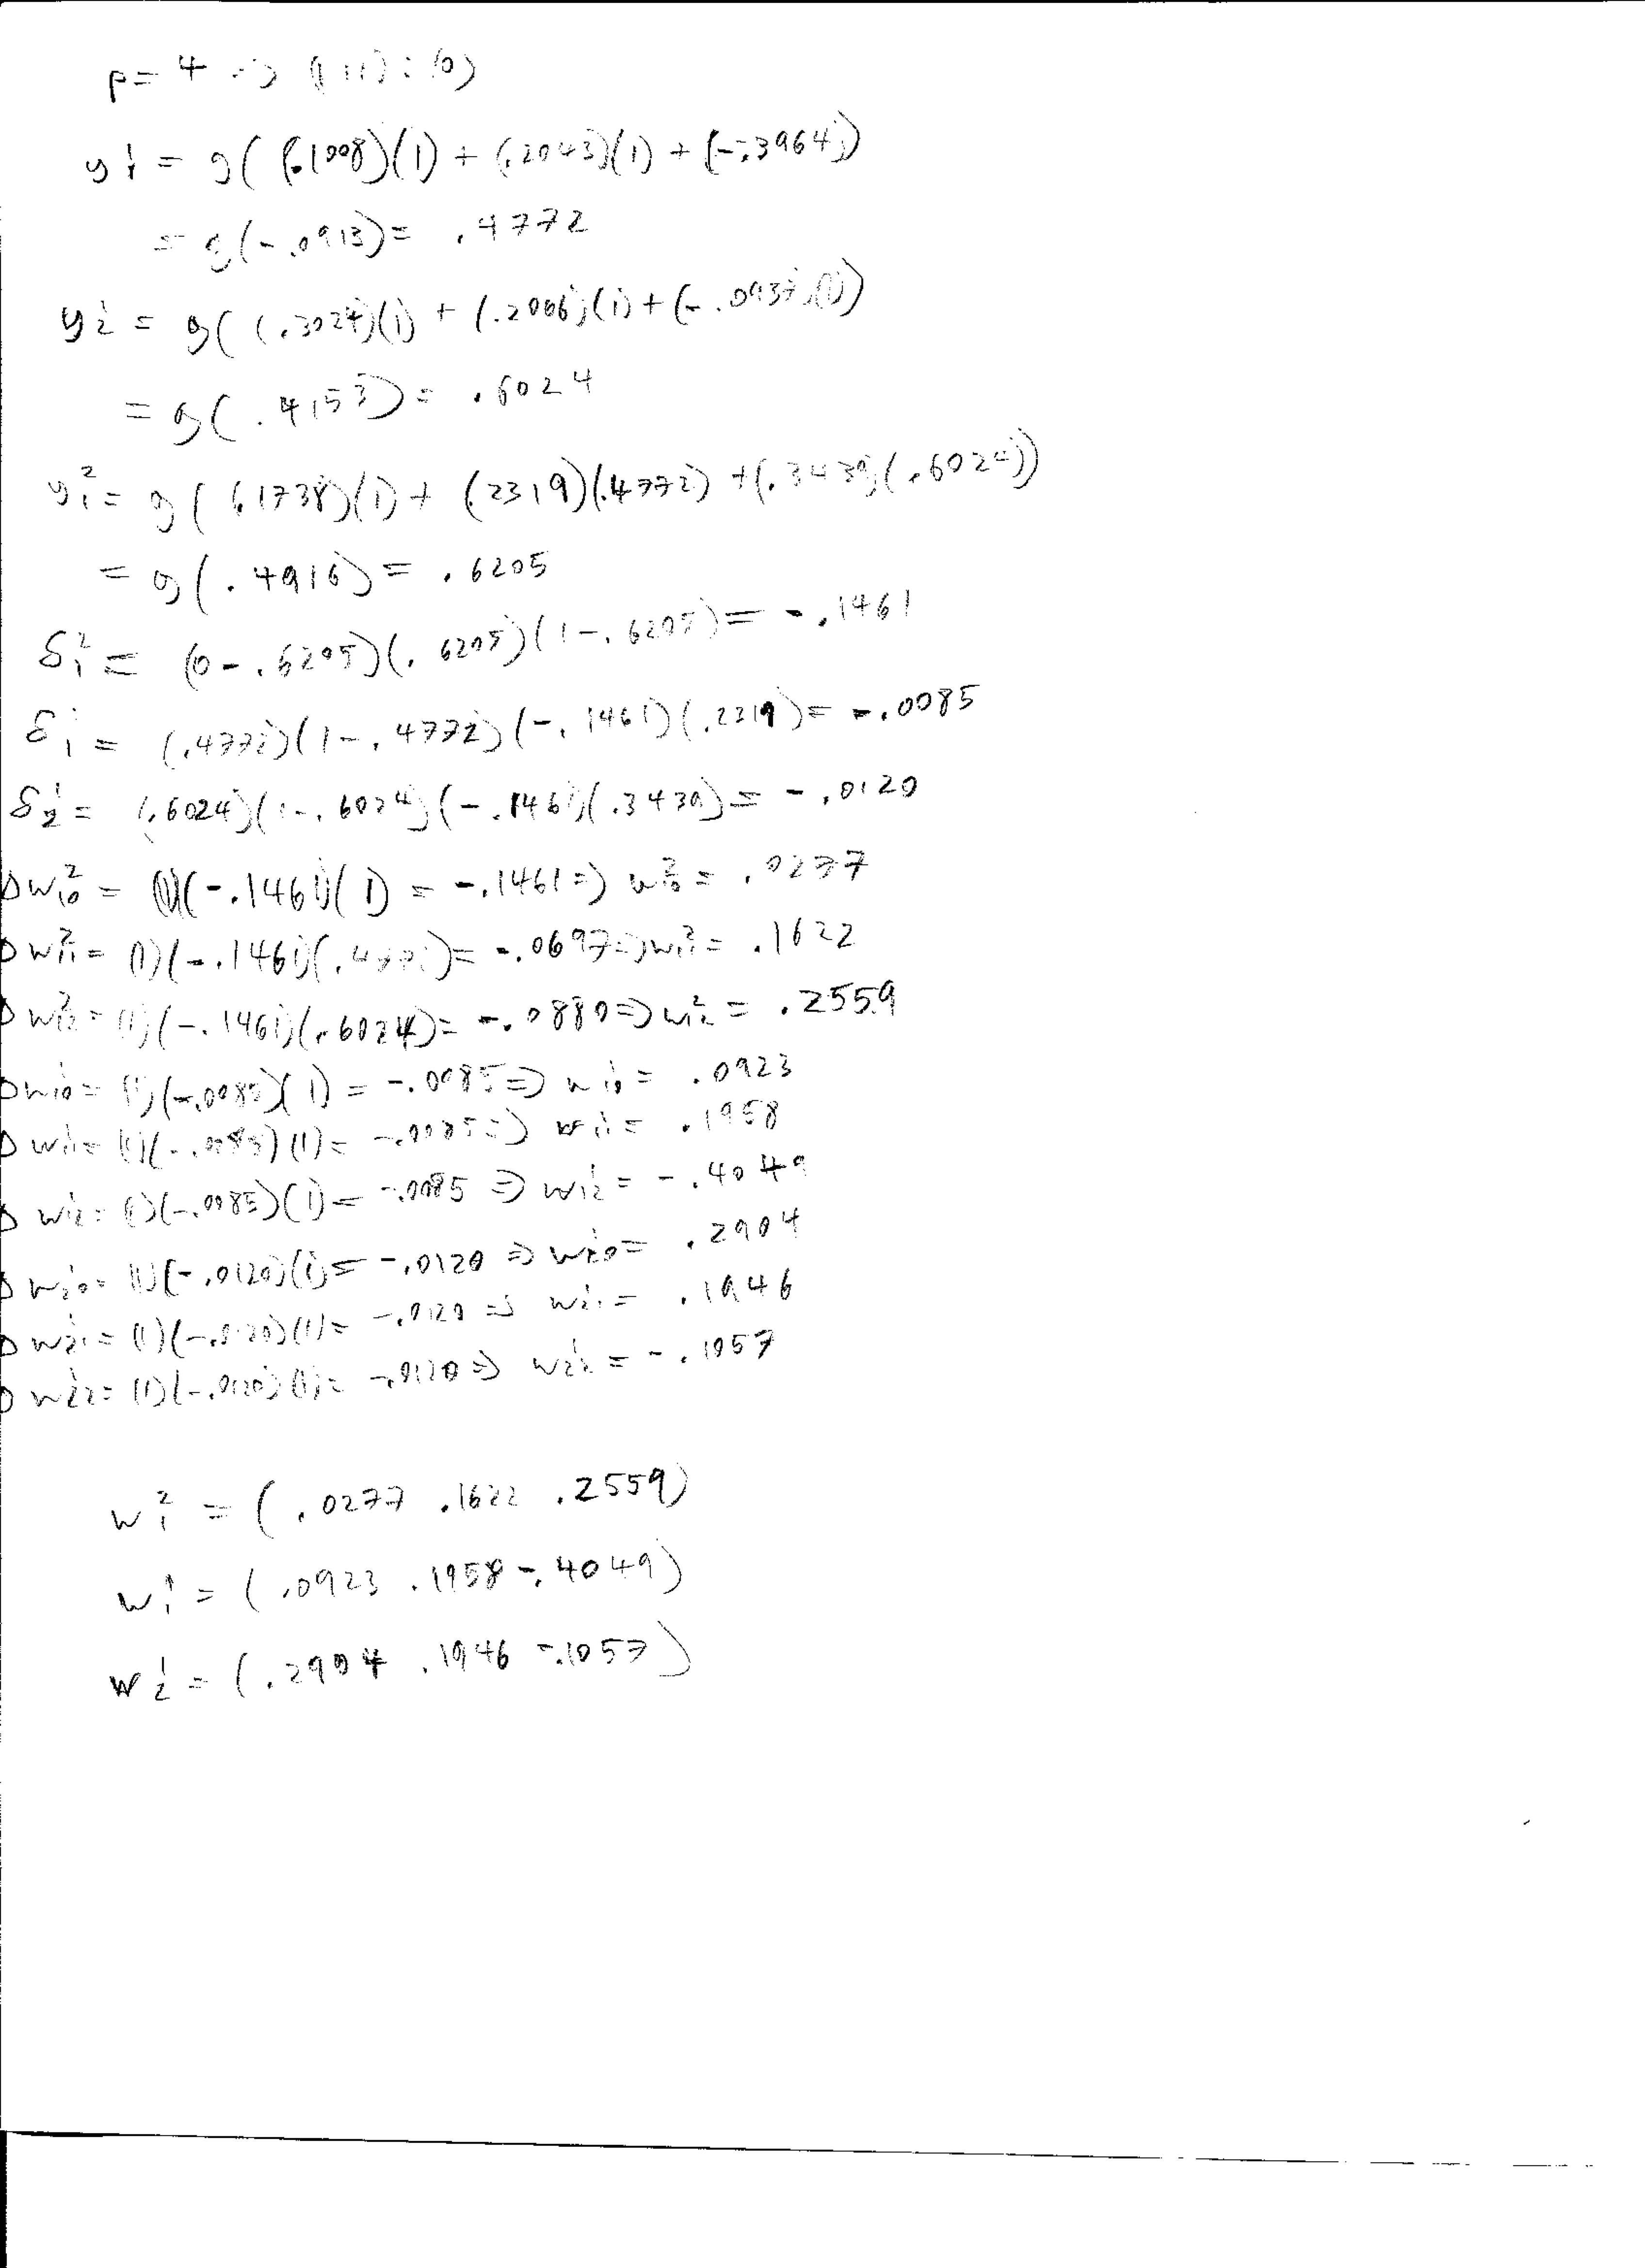 p = 4 => (1 1 1) : (0)
y₁¹ = g( (.1008)(1) + (.2043)(1) + (-.3964))
= g(-.0913) = .4772
y₂¹ = g( (.3024)(1) + (.2066)(1) + (-.0937)(1))
= g(.4153) = .6024
y₁² = g( (.1738)(1) + (.2319)(.4772) + (.3439)(.6024))
= g(.4916) = .6205
δ₁² = (0 - .6205)(.6205)(1 - .6205) = -.1461
δ₁¹ = (.4772)(1 - .4772)(-.1461)(.2319) = -.0085
δ₂¹ = (.6024)(1 - .6024)(-.1461)(.3439) = -.0120
Δw₁₀² = (1)(-.1461)(1) = -.1461 => w₁₀² = .0277
Δw₁₁² = (1)(-.1461)(.4772) = -.0697 => w₁₁² = .1622
Δw₁₂² = (1)(-.1461)(.6024) = -.0880 => w₁₂² = .2559
Δw₁₀¹ = (1)(-.0085)(1) = -.0085 => w₁₀¹ = .0923
Δw₁₁¹ = (1)(-.0085)(1) = -.0085 => w₁₁¹ = .1958
Δw₁₂¹ = (1)(-.0085)(1) = -.0085 => w₁₂¹ = -.4049
Δw₂₀¹ = (1)(-.0120)(1) = -.0120 => w₂₀¹ = .2904
Δw₂₁¹ = (1)(-.0120)(1) = -.0120 => w₂₁¹ = .1946
Δw₂₂¹ = (1)(-.0120)(1) = -.0120 => w₂₂¹ = -.1057
w₁² = (.0277 .1622 .2559)
w₁¹ = (.0923 .1958 -.4049)
w₂¹ = (.2904 .1946 -.1057)